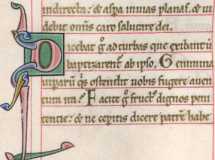 in directa: & aspa in uias planas. & ui
debit omīs caro salutare dei.
Dicebat g̃ ad turbas que exibant ut
baptizarent᷑ ab ipso. Genimina
uiparū quis ostendit uobis fugere a uen
tura ira? Facite g̃ fruct᷒ dignos peni
tentie: & ne ceperitis dicere patrē habe